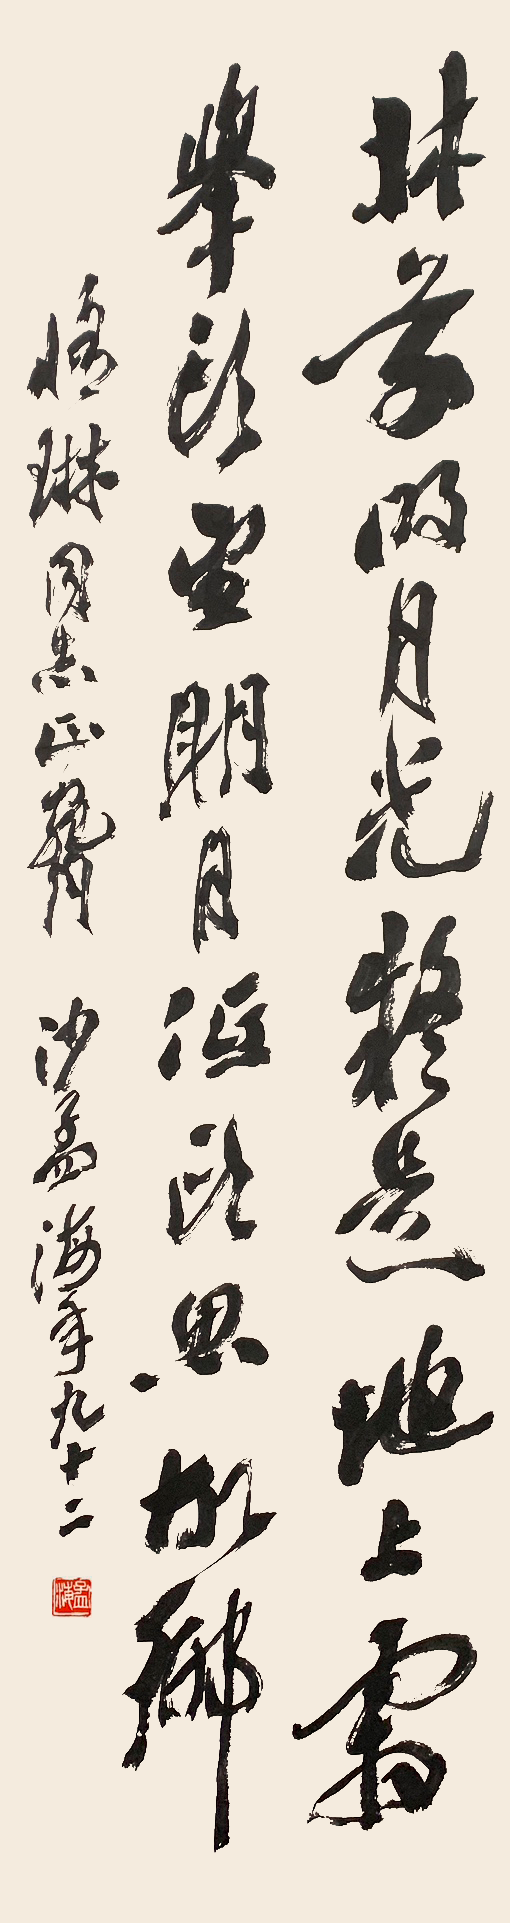 牀前明月光疑是地上霜
舉頭望明月低頭思故鄉
琳同志正腕 沙孟海年九十二
孟海